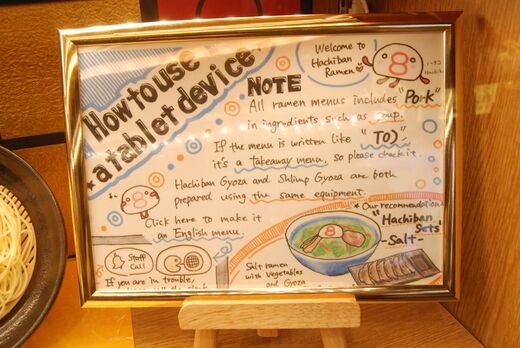 How to use
a tablet device
Welcome to
Hachiban
Ramen
8
NOTE
All ramen menus includes "Pork"
in ingredients such as soup.
If the menu is written like "TO)"
it's a takeaway menu, so please check it.
Hachiban Gyoza and Shrimp Gyoza are both
prepared using the same equipment.
Click here to make it
an English menu.
Staff
Call
If you are in trouble,
8
Our recommendation
"Hachiban
Sets"
-Salt-
8
Salt ramen
with Vegetables
and Gyoza